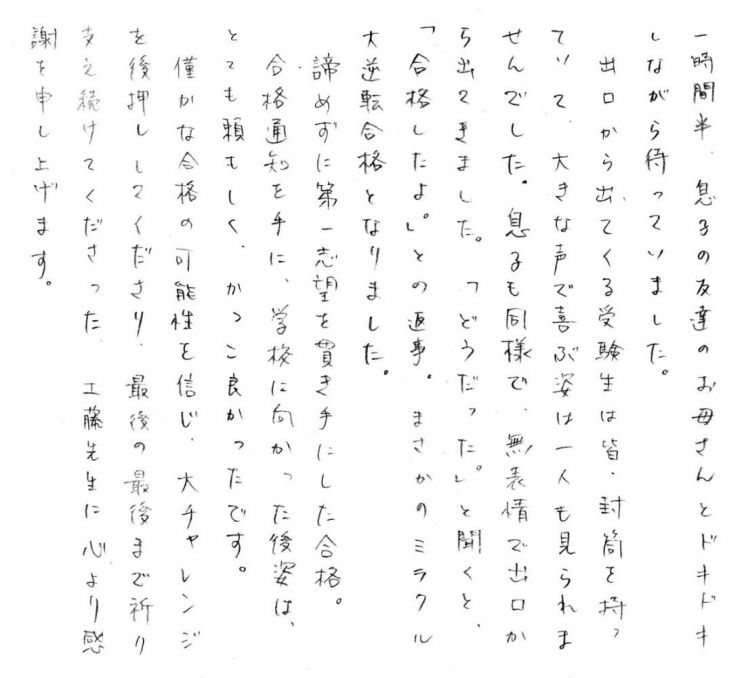 一時間半、息子の友達のお母さんとドキドキ
しながら待っていました。
出口から出てくる受験生は皆、封筒を持っ
ていて、大きな声で喜ぶ姿は一人も見られま
せんでした。息子も同様で、無表情で出口か
ら出てきました。「どうだった。」と聞くと、
「合格したよ。」との返事。まさかのミラクル
大逆転合格となりました。
諦めずに第一志望を貫き手にした合格。
合格通知を手に、学校に向かった後姿は、
とても頼もしく、かっこ良かったです。
僅かな合格の可能性を信じ、大チャレンジ
を後押ししてくださり、最後の最後まで祈り
支え続けてくださった、工藤先生に心より感
謝を申し上げます。